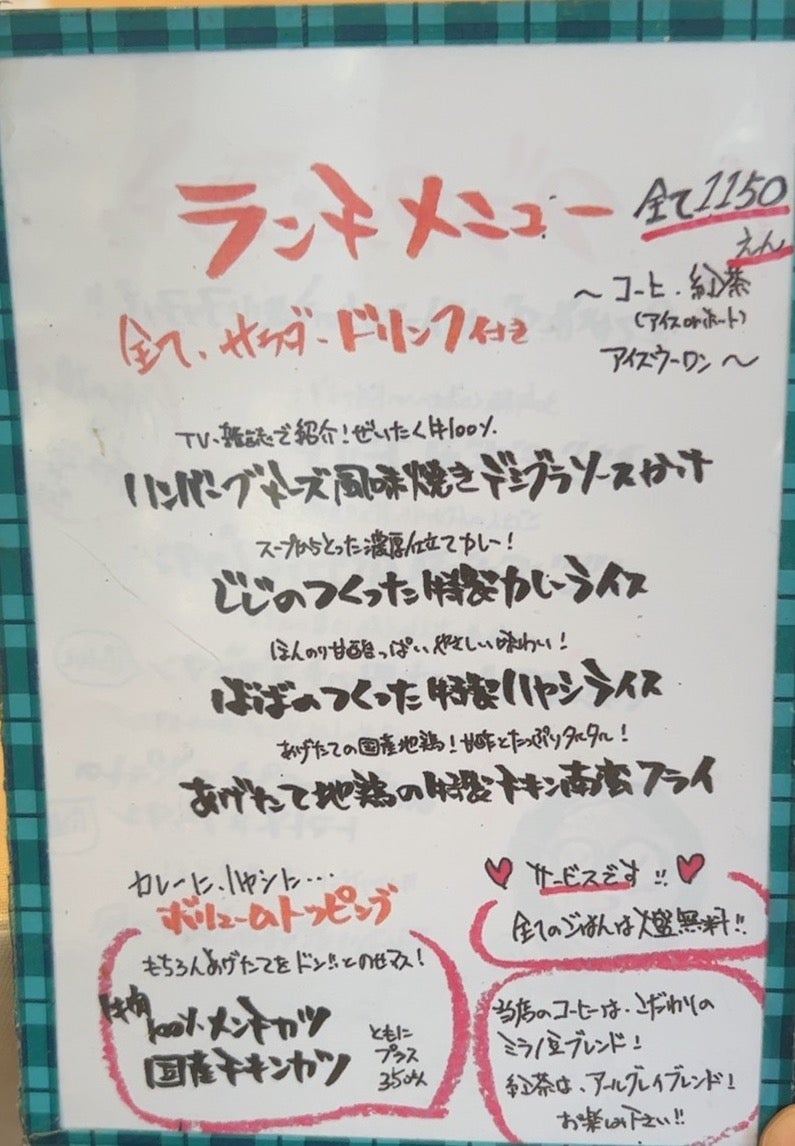 ランチメニュー 全て1150えん
全て、サラダ、ドリンク付き
〜 コーヒ、紅茶
(アイスorホット)
アイスウーロン 〜
TV、雑誌で紹介!ぜいたく牛100%
ハンバーグチーズ風味焼きデミグラソースかけ
スープからとった濃厚仕立てカレー!
じじのつくった特製カレーライス
ほんのり甘酸っぱい、やさしい味わい!
ばばのつくった特製ハヤシライス
あげたての国産地鶏!甘酢とたっぷりタルタル!
あげたて地鶏の特製チキン南蛮フライ
カレーに、ハヤシに…
ボリュームトッピング
もちろんあげたてをドン!!とのせマス!
牛肉100%メンチカツ
国産チキンカツ
ともに
プラス
350えん
サービスです!!
全てのごはんは大盛無料!!
当店のコーヒーは、こだわりの
ミラノ豆ブレンド!
紅茶は、アールグレイブレンド!
お楽しみ下さい!!